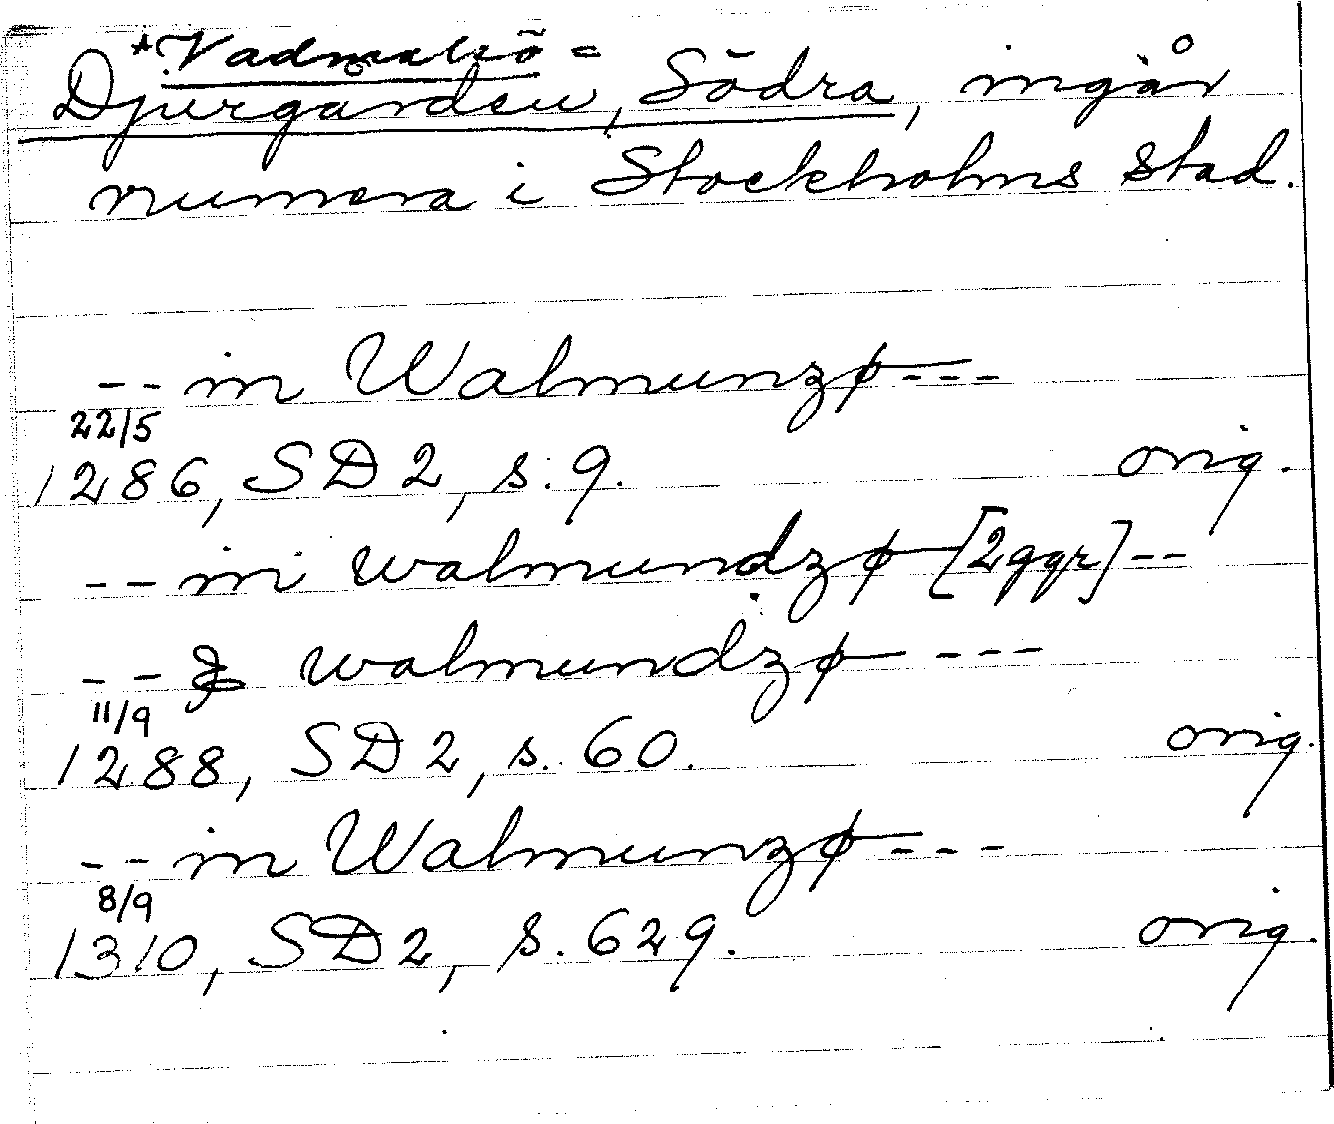 *Vadmalsö =
Djurgården, Södra, ingår
numera i Stockholms stad.
-- in Walmunzø ---
22/5
1286, SD 2, s. 9. orig.
-- in walmundzø [2 ggr] --
-- & walmundzø ---
11/9
1288, SD 2, s. 60. orig.
-- in Walmunzø ---
8/9
1310, SD 2, s. 629. orig.